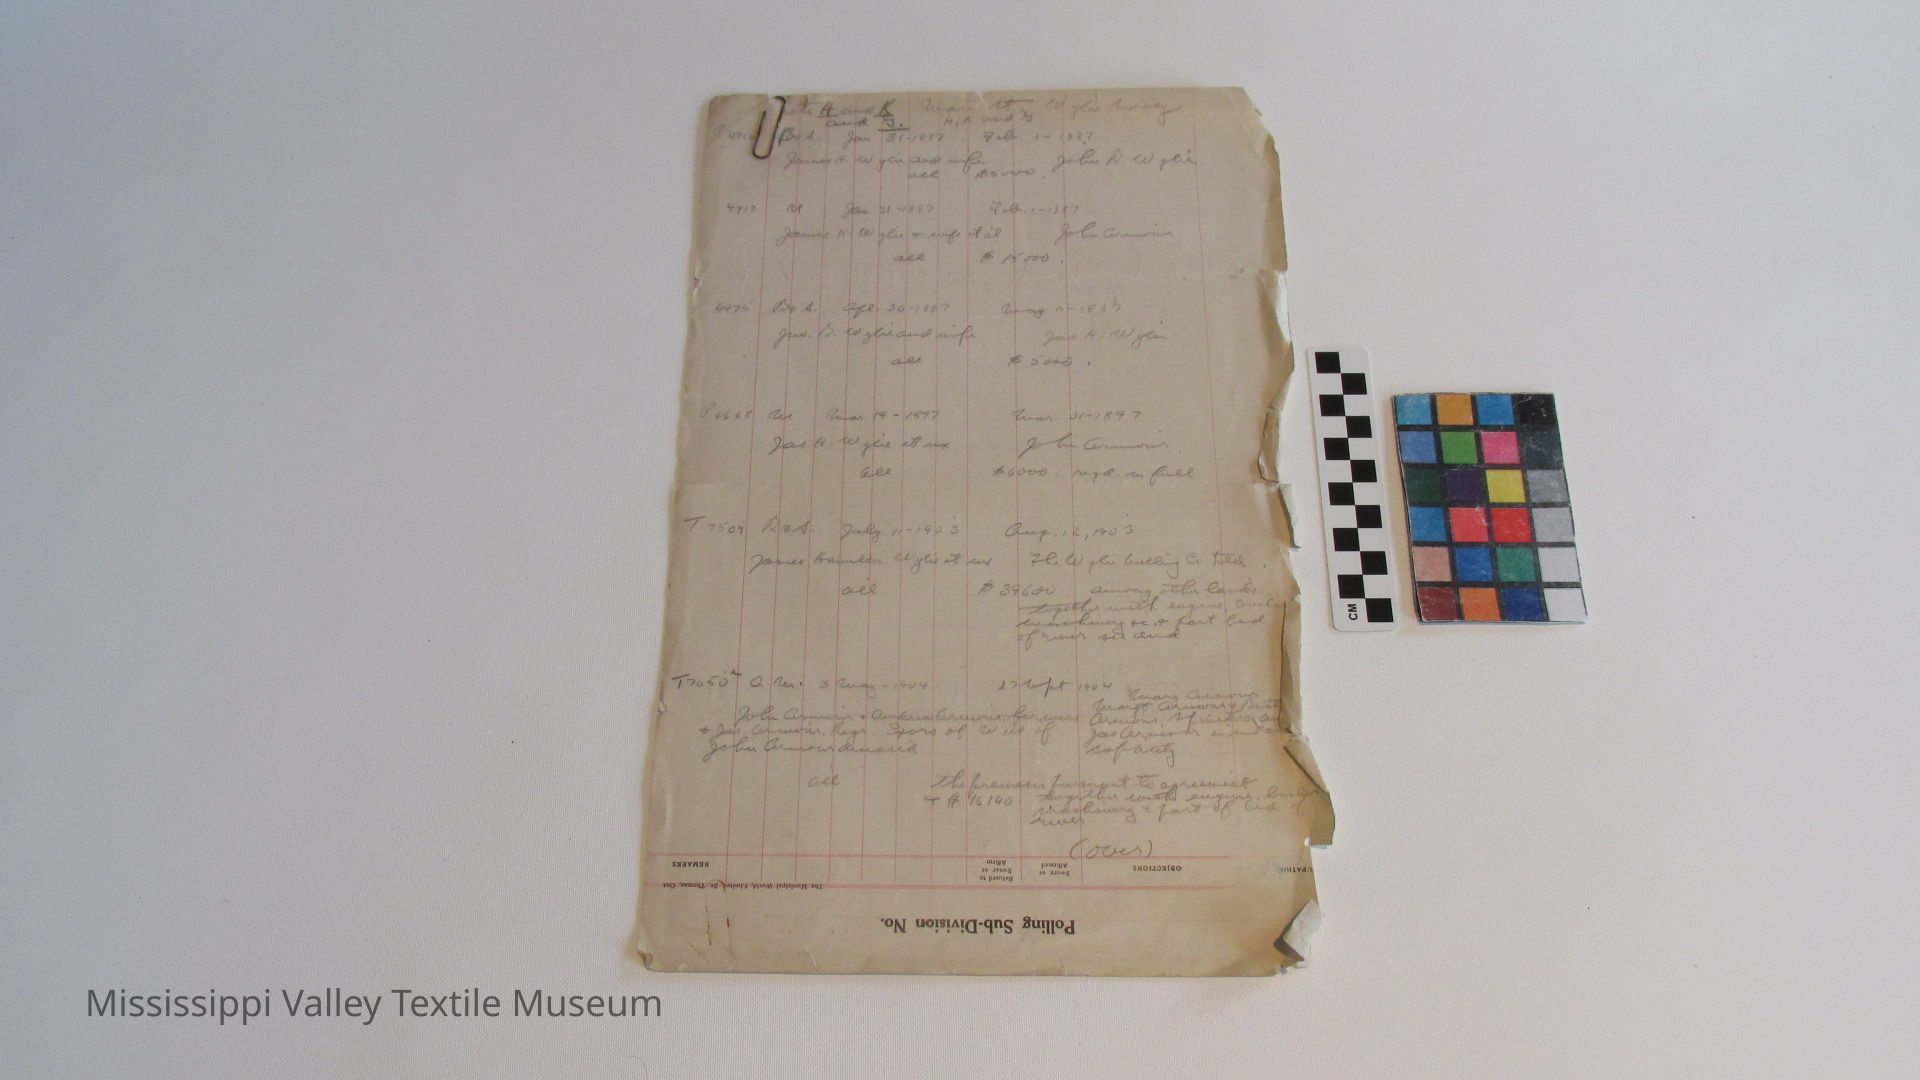 H and K Main St, Wylie Survey
and J. H, K and
B & S. Jan 31-1887 Feb 1-1887
James H. Wylie and wife John A. Wylie
all $5000.
4917 M Jan 31-1887 Feb. 1-1887
James H. Wylie & wife et al John Armour
all $15000.
4975 B & S. Apl. 30-1887 May 1887
Jas. B. Wylie and wife Jas H. Wylie
all $5000.
6668 M. Mar. 19-1897 Mar. 31-1897
Jas H. Wylie et ux John Armour
all $6000. regd in full
T 7509 B & S. July 11-1903 Aug. 12, 1903
James Hamilton Wylie et ux The Wylie Milling Co Ltd.
all $39600 among other lands.
together with engine, boiler
machinery &c. & part bed
of river
T7050 A. M. 3 May-1904 27 Sept 1904
Mary Armour
John Armour & Andrew Armour, farmers
& Jas. Armour, Regr. Exors of Will of Jas Armour
John Armour deceased capacity
all the premises pursuant to agreement
& $16140. together with engine, boiler
machinery & part of bed of
river
(over)
REMARKS Refused to Swear or Affirm Sworn or Affirmed OBJECTIONS
The Municipal World, Limited, St. Thomas, Ont.
Polling Sub-Division No.
CM
Mississippi Valley Textile Museum